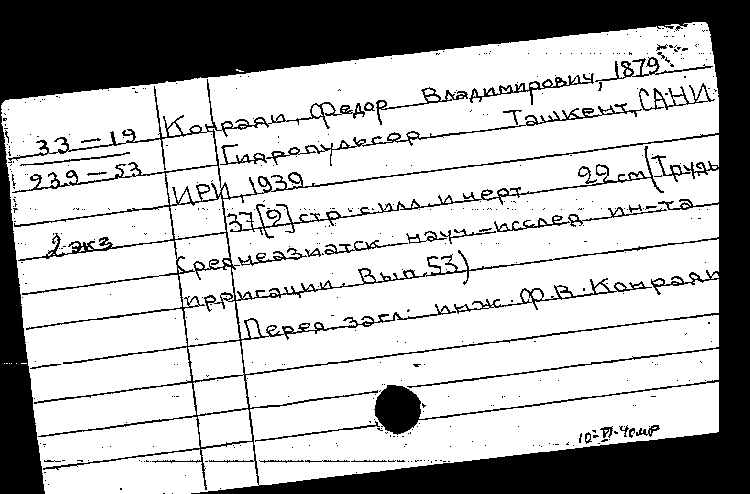 33-19
239-53
2 экз
Конради, Федор Владимирович, 1879
Гидропульсор. Ташкент, САНИ
ИРИ, 1939.
37,[2] стр. с илл. и черт. 22 см (Труды
Среднеазиатск. науч.-исслед. ин-та
ирригации. Вып. 53)
Перед загл: инж. Ф.В. Конради
10-VI-40